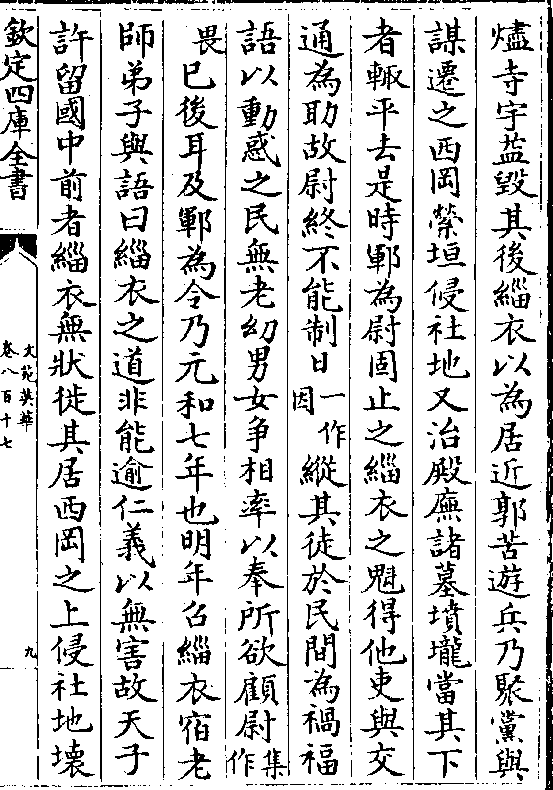 燼寺宇益毀其後緇衣以為居近郭苦遊兵乃聚黨與
謀遷之西岡縈垣侵社地又治殿廡諸墓墳壠當其下
者輙平去是時鄆為尉固止之緇衣之魁得他吏與交
通為助故尉終不能制日一作因縱其徒於民間為禍福
語以動惑之民無老幼男女争相率以奉所欲顧尉集作
畏已後耳及鄆為令乃元和七年也明年召緇衣宿老
師弟子與語曰緇衣之道非能逾仁義以無害故天子
許留國中前者緇衣無狀徙其居西岡之上侵社地壊
欽定四庫全書
文苑英華
卷八百十七
九